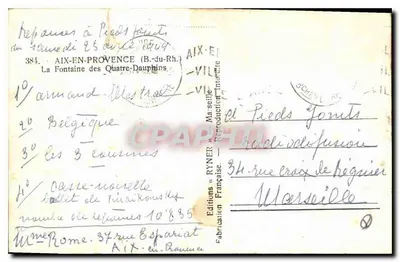 Réponses à Pieds Joints
du samedi 23 avril 1949
384. - AIX-EN-PROVENCE (B.-du-Rh.)
La Fontaine des Quatre-Dauphins
1° armand Mestral
2° Belgique
3° les 3 cousines
4° casse-noisette
ballet de Tchaikowsky
nombre de réponses 10'835
Mme Rome. 37 rue Espariat
Aix-en-Provence
Editions « RYNER » Marseille
Fabrication Française. - Reproduction Interdite
AIX-E
-VIL
-VIL
à Pieds Joints
Radiodiffusion
34 rue croix de Régnier
Marseille